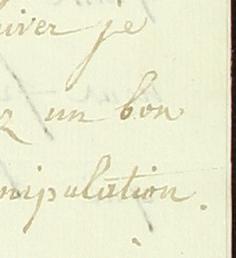 iver je
z un bon
nipulation.